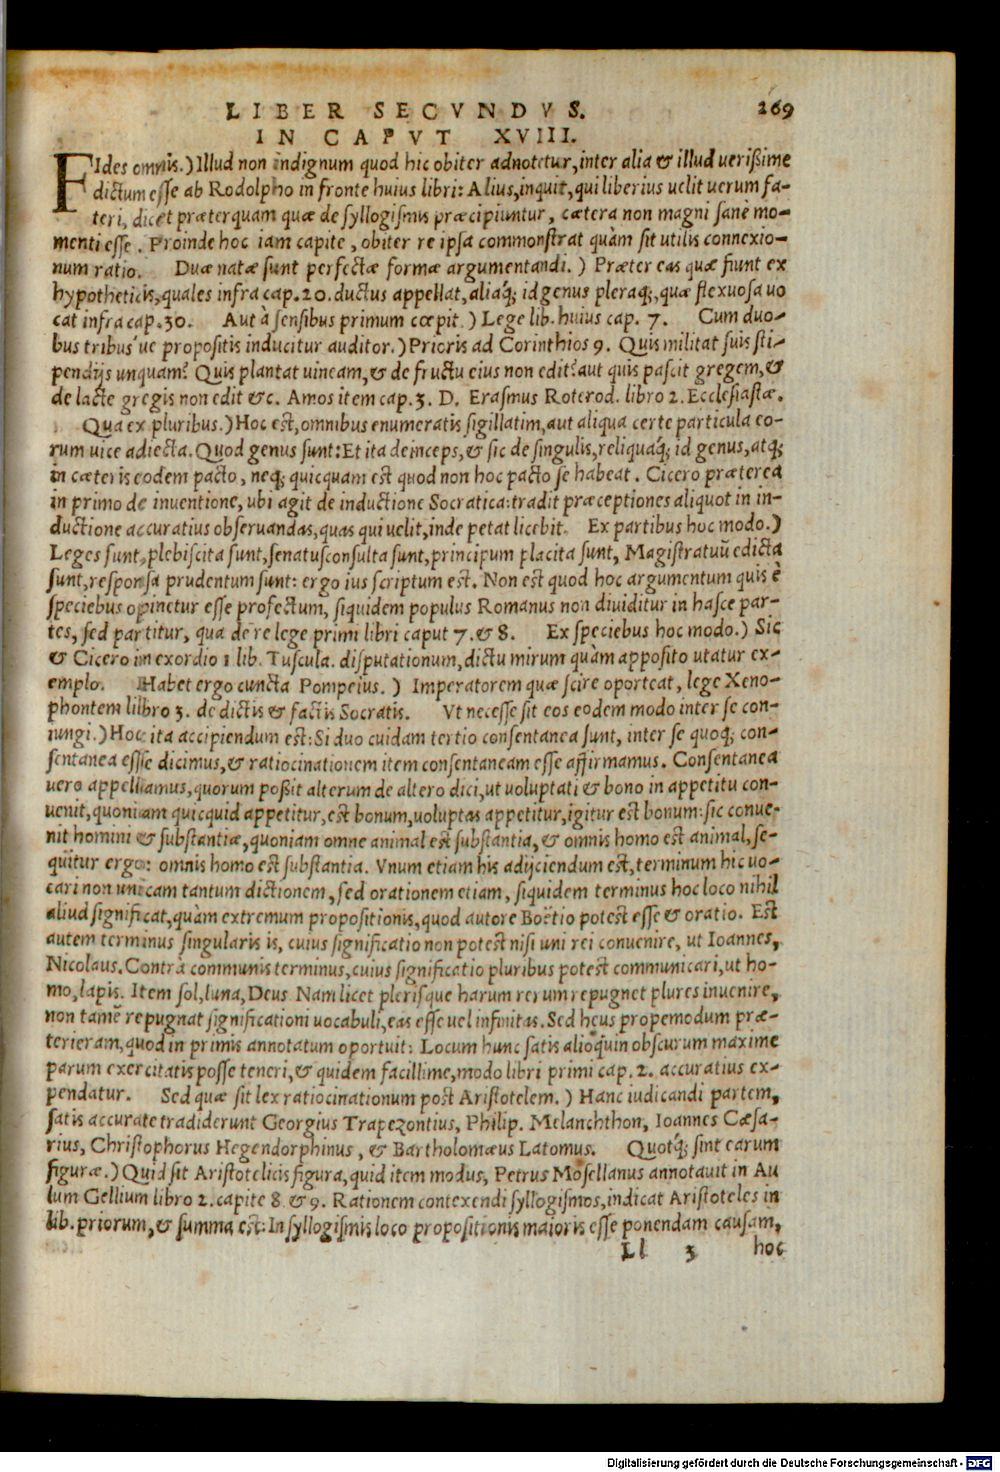 LIBER SECVNDVS. 269
IN CAPVT XVIII.
FIdes omnis.) Illud non indignum quod hic obiter adnotetur, inter alia & illud uerißime
dictum esse ab Rodolpho in fronte huius libri: Alius, inquit, qui liberius uelit uerum fa-
teri, dicet præterquam quæ de syllogismis præcipiuntur, cætera non magni sanè mo-
menti esse. Proinde hoc iam capite, obiter re ipsa commonstrat quàm sit utilis connexio-
num ratio. Duæ natæ sunt perfectæ formæ argumentandi.) Præter eas quæ fiunt ex
hypotheticis, quales infra cap. 20. ductus appellat, aliaq́; id genus pleraq́;, quæ flexuosa uo
cat infra cap. 30. Aut à sensibus primum cœpit.) Lege lib. huius cap. 7. Cum duo-
bus tribus'ue propositis inducitur auditor.) Prioris ad Corinthios 9. Quis militat suis sti-
pendijs unquam? Quis plantat uineam, & de fructu eius non edit? aut quis pascit gregem, &
de lacte gregis non edit &c. Amos item cap. 3. D. Erasmus Roterod. libro 2. Ecclesiastæ.
Qua ex pluribus.) Hoc est, omnibus enumeratis sigillatim, aut aliqua certe particula eo-
rum uice adiecta. Quod genus sunt: Et ita deinceps, & sic de singulis, reliquaq́; id genus, atq;
in cæteris eodem pacto, neq; quicquam est quod non hoc pacto se habeat. Cicero præterea
in primo de inuentione, ubi agit de inductione Socratica: tradit præceptiones aliquot in in-
ductione accuratius obseruandas, quas qui uelit, inde petat licebit. Ex partibus hoc modo.)
Leges sunt, plebiscita sunt, senatusconsulta sunt, principum placita sunt, Magistratuũ edicta
sunt, responsa prudentum sunt: ergo ius scriptum est. Non est quod hoc argumentum quis è
speciebus opinetur esse profectum, siquidem populus Romanus non diuiditur in hasce par-
tes, sed partitur, qua de re lege primi libri caput 7. & 8. Ex speciebus hoc modo.) Sic
& Cicero in exordio 1 lib. Tuscula. disputationum, dictu mirum quàm apposito utatur ex-
emplo. Habet ergo cuncta Pompeius.) Imperatorem quæ scire oporteat, lege Xeno-
phontem libro 3. de dictis & factis Socratis. Vt necesse sit eos eodem modo inter se con-
iungi.) Hoc ita accipiendum est: Si duo cuidam tertio consentanea sunt, inter se quoq; con-
sentanea essse dicimus, & ratiocinationem item consentaneam esse affirmamus. Consentanea
uero appellamus, quorum poßit alterum de altero dici, ut uoluptati & bono in appetitu con-
uenit, quoniam quicquid appetitur, est bonum, uoluptas appetitur, igitur est bonum: sic conue-
nit homini & substantiæ, quoniam omne animal est substantia, & omnis homo est animal, se-
quitur ergo: omnis homo est substantia. Vnum etiam his adijciendum est, terminum hic uo-
cari non unicam tantum dictionem, sed orationem etiam, siquidem terminus hoc loco nihil
aliud significat, quàm extremum propositionis, quod autore Boëtio potest esse & oratio. Est
autem terminus singularis is, cuius significatio non potest nisi uni rei conuenire, ut Ioannes,
Nicolaus. Contrà communis terminus, cuius significatio pluribus potest communicari, ut ho-
mo, lapis. Item sol, luna, Deus Nam licet plerisque harum rerum repugnet plures inuenire,
non tamẽ repugnat significationi uocabuli, eas esse uel infinitas. Sed heus propemodum præ-
terieram, quod in primis annotatum oportuit: Locum hunc satis alioquin obscurum maxime
parum exercitatis posse teneri, & quidem facillime, modo libri primi cap. 2. accuratius ex-
pendatur. Sed quæ sit lex ratiocinationum post Aristotelem.) Hanc iudicandi partem,
satis accurate tradiderunt Georgius Trapezontius, Philip. Melanchthon, Ioannes Cæsa-
rius, Christophorus Hegendorphinus, & Bartholomæus Latomus. Quotq́; sint earum
figuræ.) Quid sit Aristotelicis figura, quid item modus, Petrus Mosellanus annotauit in Au
lum Gellium libro 2. capite 8. & 9. Rationem contexendi syllogismos, indicat Aristoteles in
lib. priorum, & summa est: In syllogismis loco propositionis maioris esse ponendam causam,
Ll 3 hoc
Digitalisierung gefördert durch die Deutsche Forschungsgemeinschaft - DFG